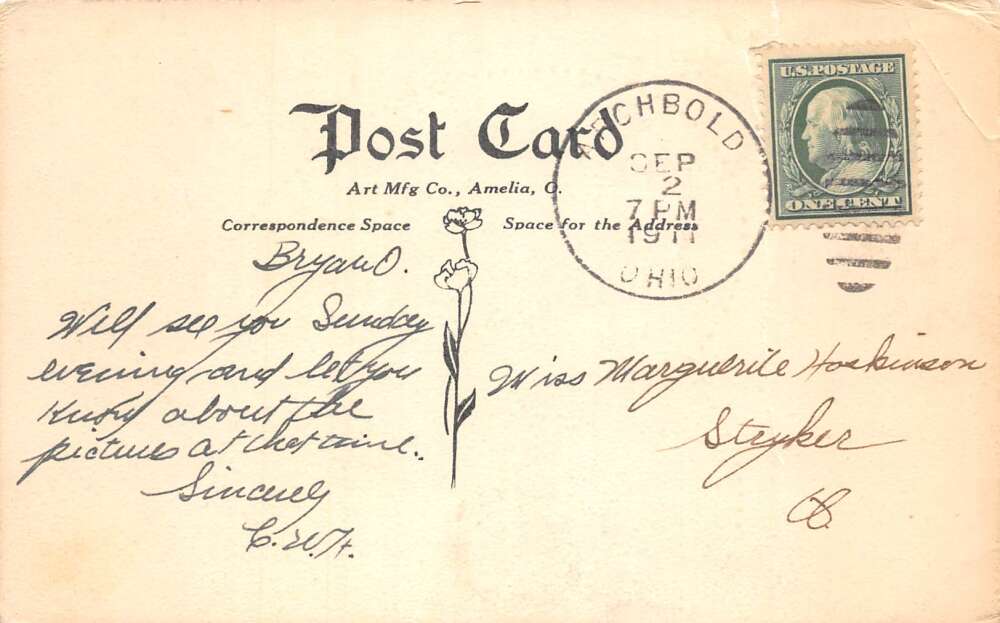 Post Card
Art Mfg Co., Amelia, O.
Correspondence Space
Space for the Address
ARCHBOLD
SEP
2
7 PM
1911
OHIO
U.S. POSTAGE
ONE CENT
Bryan O.
Will see you Sunday
evening and let you
know about the
pictures at that time.
Sincerely
C.W.F.
Miss Marguerite Hoskinson
Stryker
O.